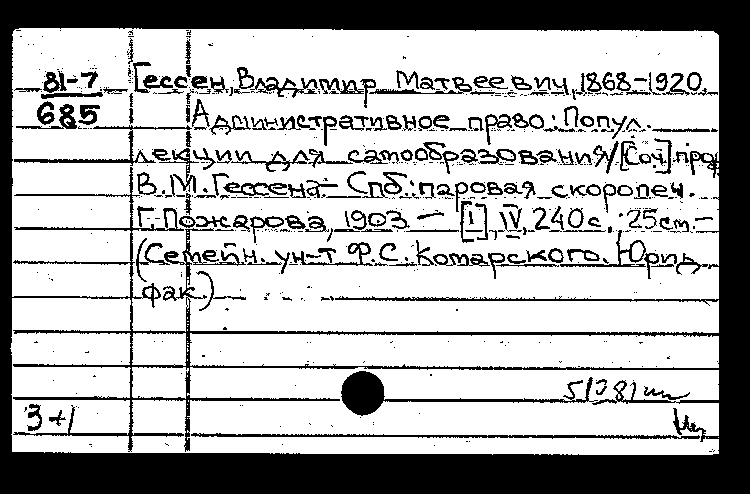 81-7 Гессен, Владимир Матвеевич, 1868-1920.
685 Административное право: Попул.
лекции для самообразования/[Соч.] проф.
В.М.Гессена.- Спб.: паровая скоропеч.
Г. Пожарова, 1903. — [1], IV, 240 с.; 25см. —
(Семейн. ун-т Ф.С. Комарского. Юрид.
фак.)
3+1